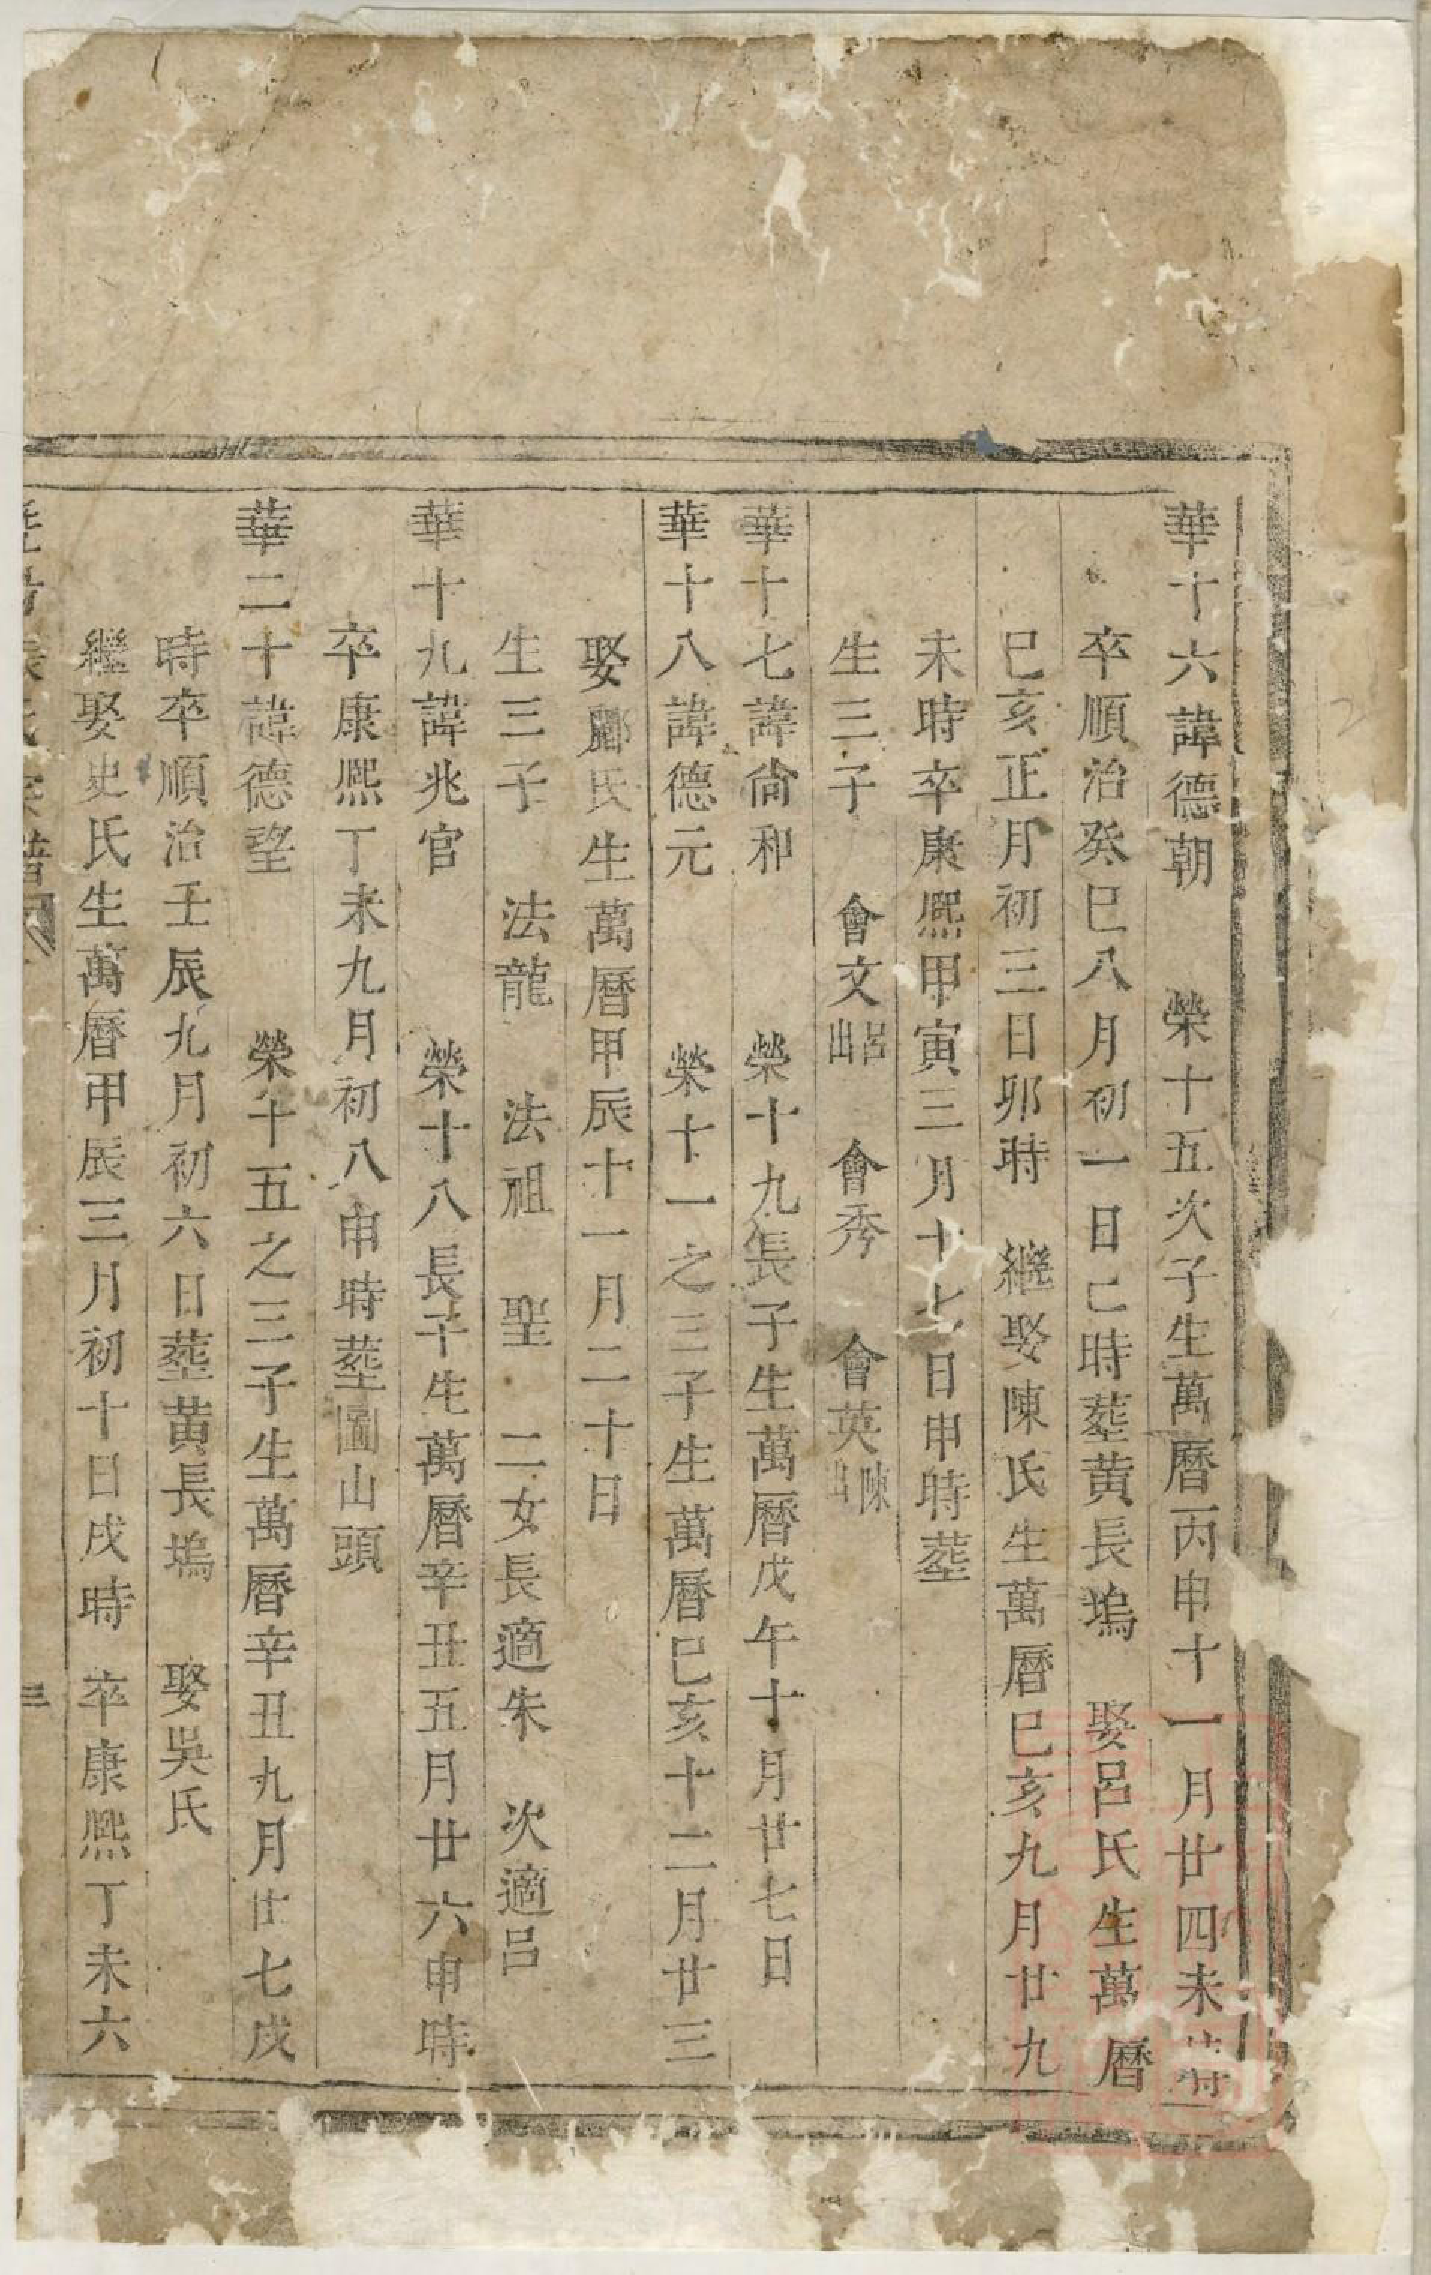 華十六諱德朝　榮十五次子生萬曆丙申十一月廿四未時
卒順治癸巳八月初一日巳時塟黄長塢　娶呂氏生萬曆
巳亥正月初三日卯時　繼娶陳氏生萬曆巳亥九月廿九
未時卒康熈甲寅三月十七日申時塟
生三子　會文呂出　會秀　會英陳出
華十七諱尙和　榮十九長子生萬曆戊午十月廿七日
華十八諱德元　榮十一之三子生萬曆巳亥十二月廿三
娶酈氏生萬曆甲辰十一月二十日
生三子　法龍　法祖　聖　二女長適朱　次適吕
華十九諱兆官　榮十八長子生萬曆辛丑五月廿六申時
卒康熈丁未九月初八申時塟圖山頭
華二十諱德望　榮十五之三子生萬曆辛丑九月廿七戌
時卒順治壬辰九月初六日塟黄長塢　娶吳氏
繼娶史氏生萬曆甲辰三月初十日戌時　卒康熈丁未六
氏宗譜　三